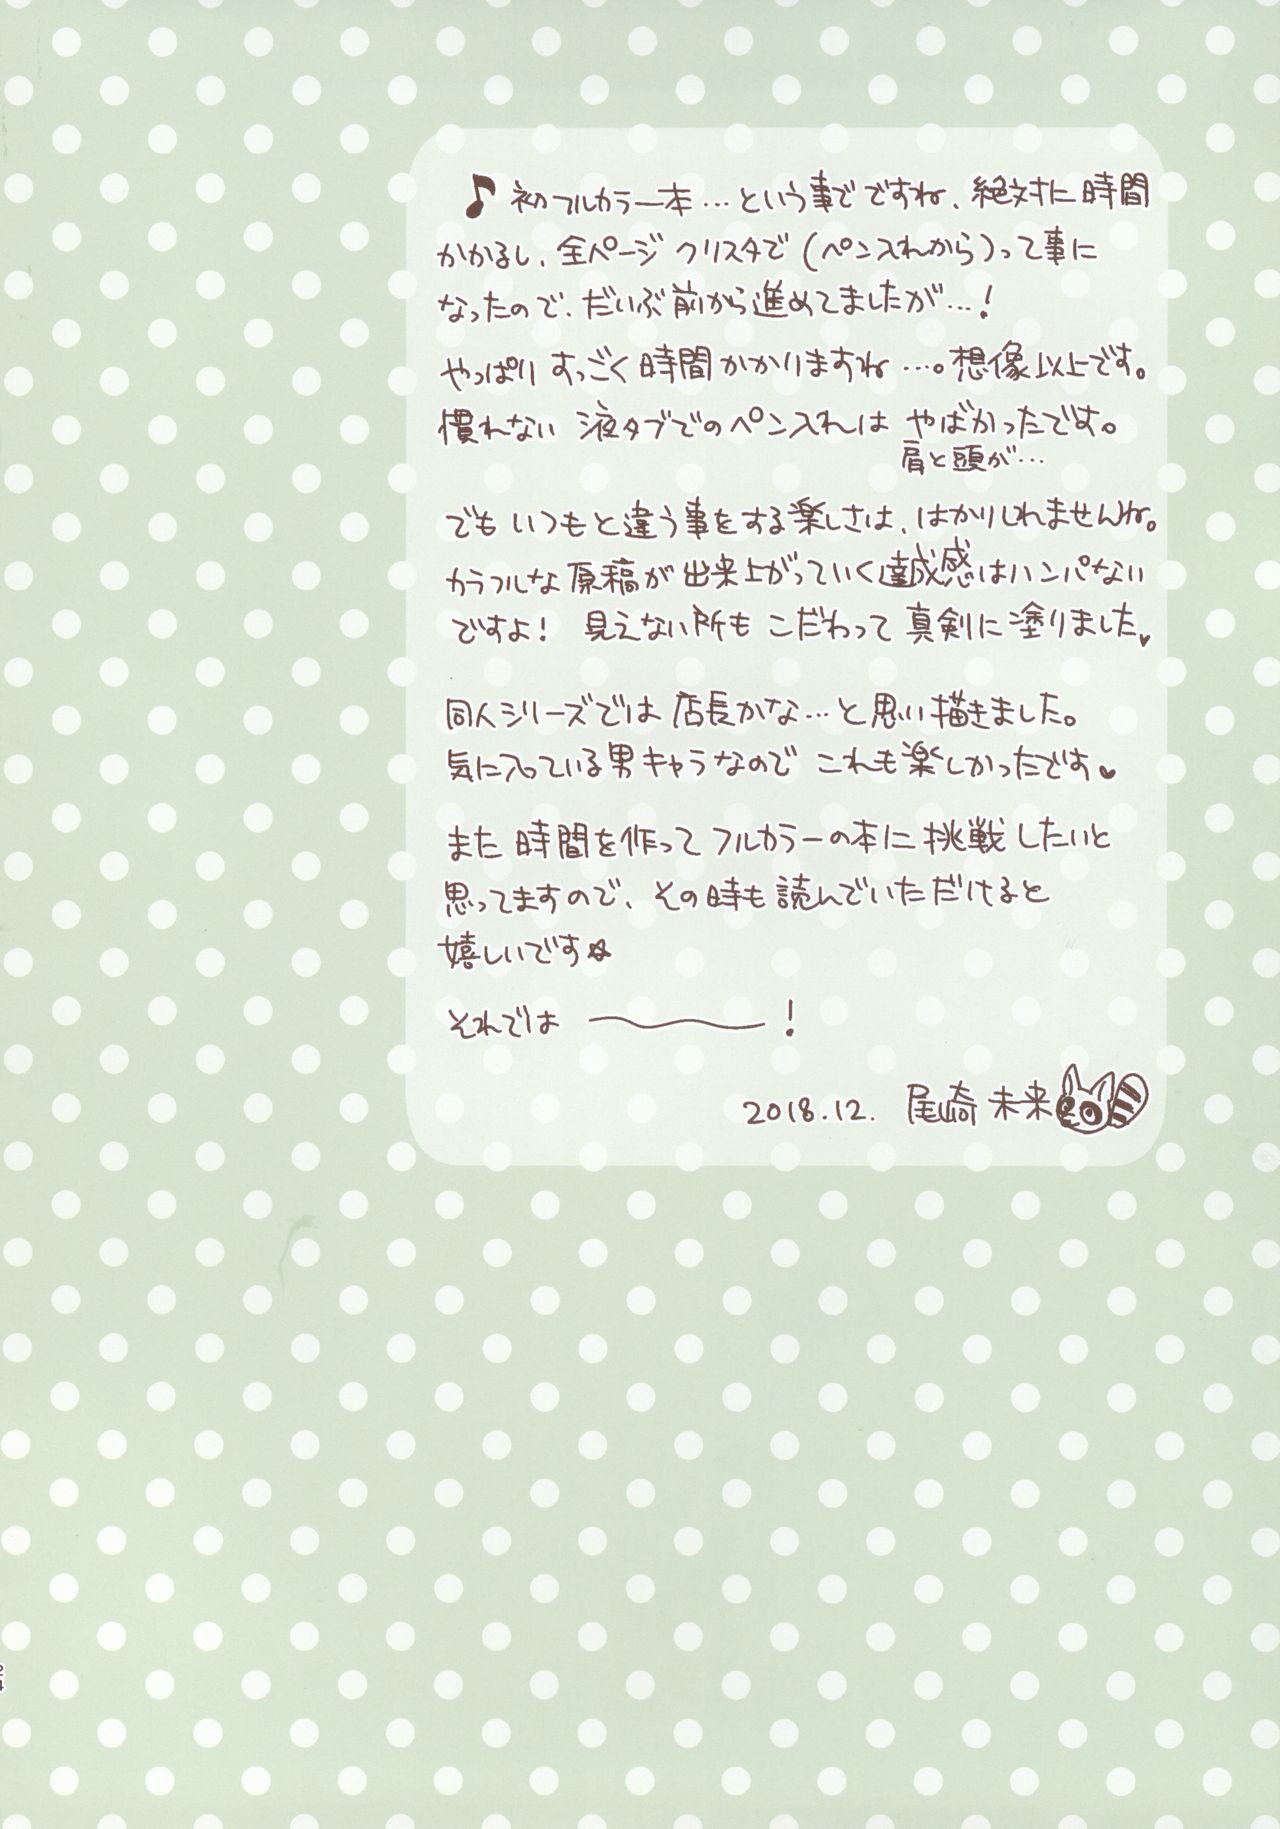 ♪初フルカラー本…という事でですね、絶対に時間
かかるし、全ページ クリスタで(ペン入れから)って事に
なったので、だいぶ前から進めてましたが…!
やっぱり すっごく時間かかりますね…。想像以上です。
慣れない 液タブでのペン入れは やばかったです。
肩と頭が…
でも いつもと違う事をする楽しさは、はかりしれませんね。
カラフルな 原稿が 出来上がっていく達成感はハンパない
ですよ! 見えない所も こだわって 真剣に塗りました♥
同人シリーズでは 店長かな…と思い描きました。
気に入っている男キャラなので これも楽しかったです♥
また 時間を作って フルカラーの本に 挑戦したいと
思ってますので、その時も読んでいただけると
嬉しいです☆
それでは 〜!
2018.12. 尾崎 未来
24